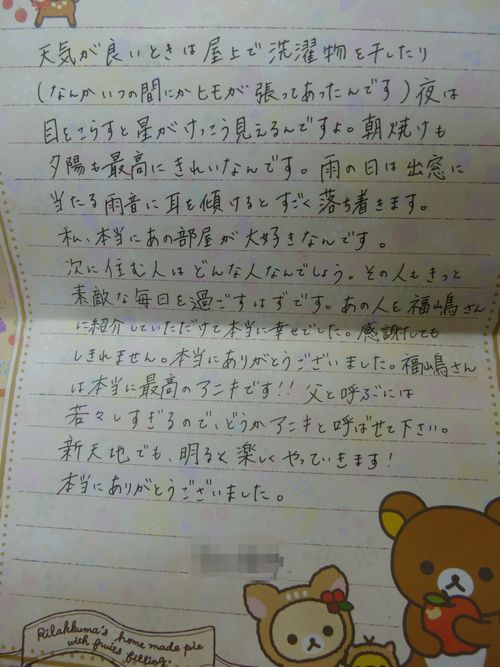 天気が良いときは屋上で洗濯物を干したり
(なんかいつの間にかヒモが張ってあったんです)夜は
目をこらすと星がけっこう見えるんですよ。朝焼けも
夕陽も最高にきれいなんです。雨の日は出窓に
当たる雨音に耳を傾けるとすごく落ち着きます。
私、本当にあの部屋が大好きなんです。
次に住む人はどんな人なんでしょう。その人もきっと
素敵な毎日を過ごすはずです。あの人を福嶋さん
に紹介していただけて本当に幸せでした。感謝しても
しきれません。本当にありがとうございました。福嶋さん
は本当に最高のアニキです!! 父と呼ぶには
若々しすぎるので、どうかアニキと呼ばせて下さい。
新天地でも、明るく楽しくやっていきます!
本当にありがとうございました。
Rilakkuma's home made pie
with fruits filling.